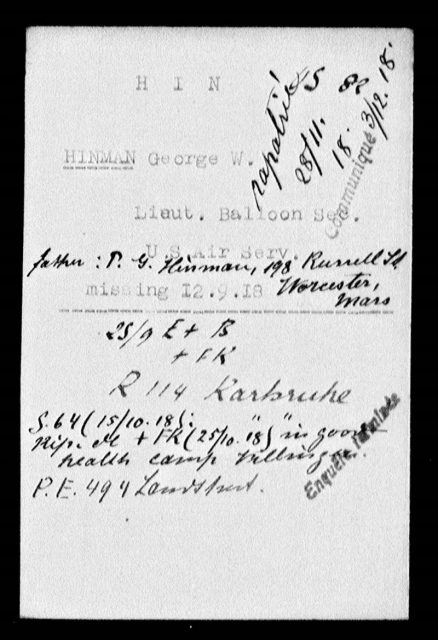 H I N
rapatrié
28/11. 18.
Communiqué 3/12.18.
HINMAN George W.
Lieut. Balloon
U.S. Air Serv.
father : P. G. Hinman, 198 Russell St
Worcester,
Mass
missing 12.9.18
25/9 E + B
+ FK
R 114 Karlsruhe
S. 64 (15/10.18):
+ FK (25/10. "18) "in good
health camp Villingen.
P.E. 494 Landshut.
Enquête